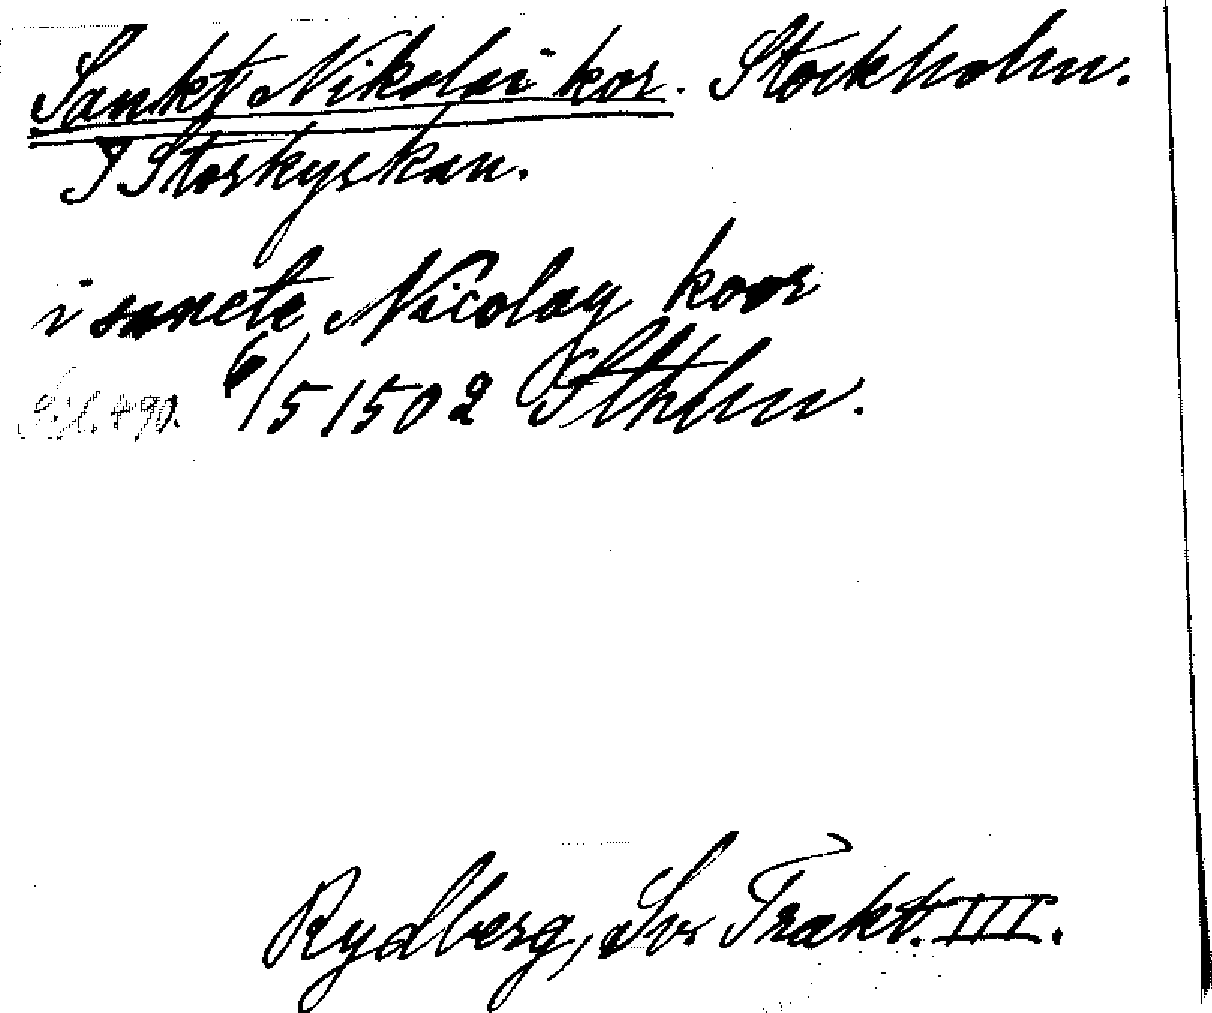 Sankt Nikolai kor. Stockholm.
I Storkyrkan.
i sancte Nicolay koor
6/5 1502 Sthlm.
Rydberg, Sv. Trakt. III.